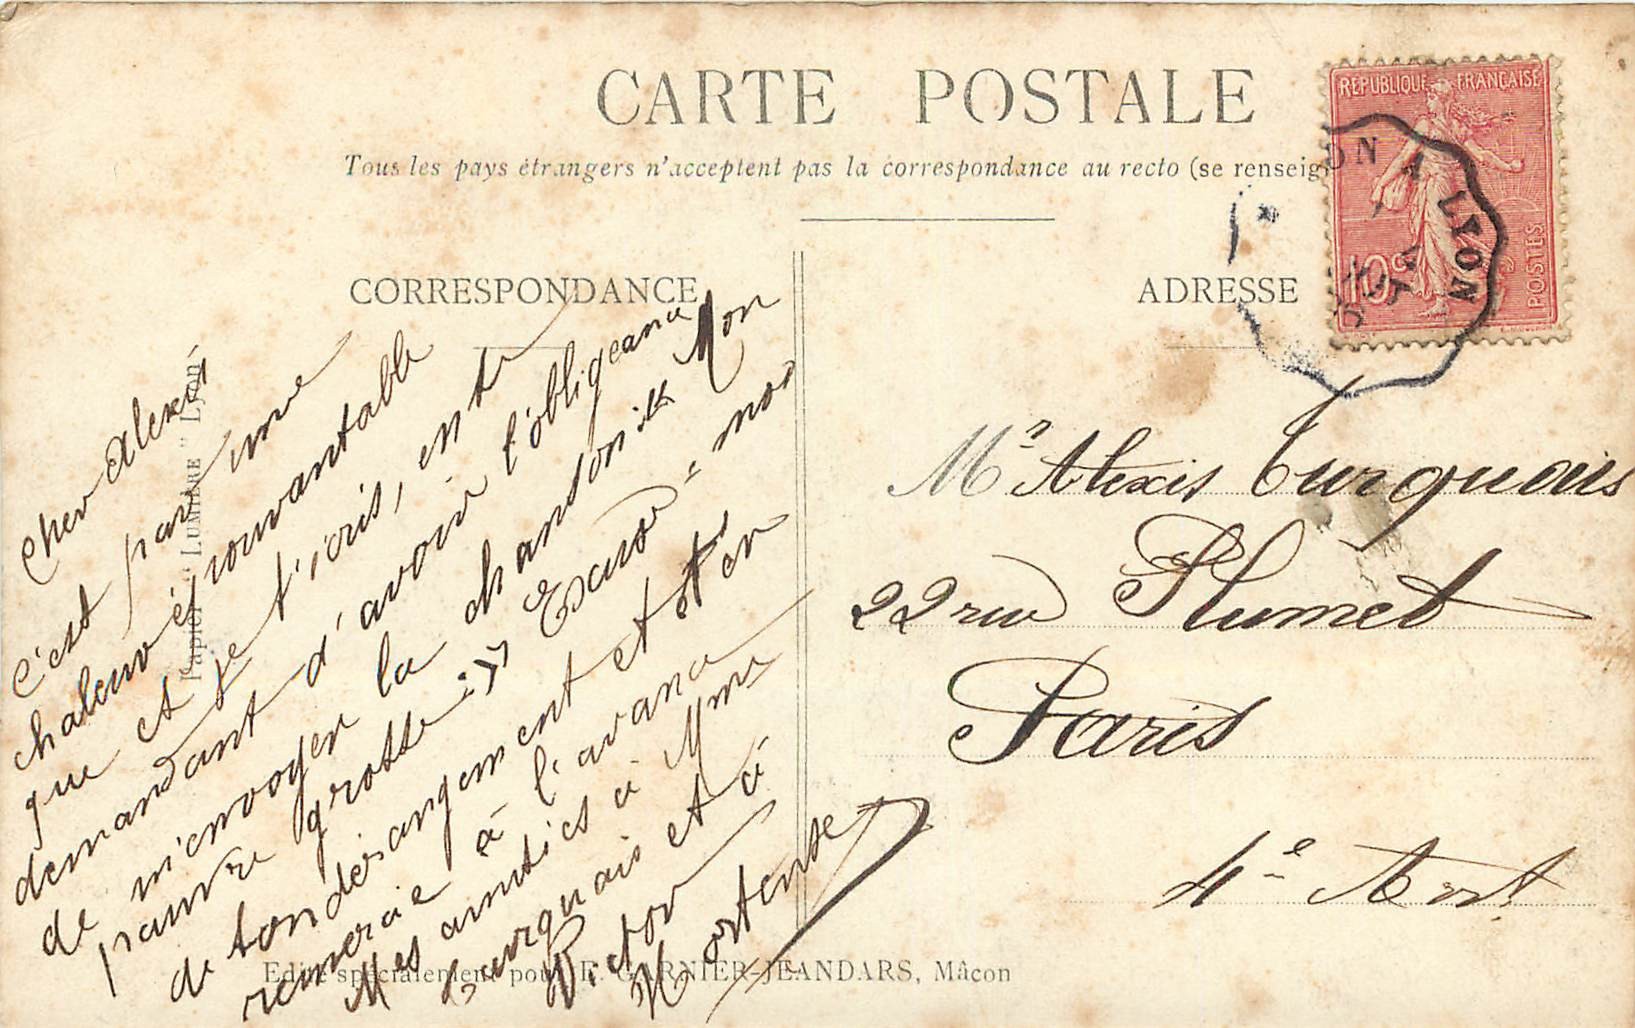 CARTE POSTALE
Tous les pays étrangers n'acceptent pas la correspondance au recto (se renseig
REPUBLIQUE FRANÇAISE
10c
POSTES
ON A LYON
CORRESPONDANCE
ADRESSE
Cher Alexis
C'est par une
chaleur épouvantable
que et je t'écris, ente
demandant d'avoir l'obligeance
de m'envoyer la chansonite Mon
pauvre grosse :» Excuse-moi
de ton dérangement et t'en
remercie à l'avance
Mes amitiés à Mme
Turquais et à
Victor
Hortense
Mr Alexis Turquais
22 rue Plumet
Paris
4e Arrt
Papier "LUMIÈRE" Lyon
Edité spécialement pour F. GARNIER-JEANDARS, Mâcon